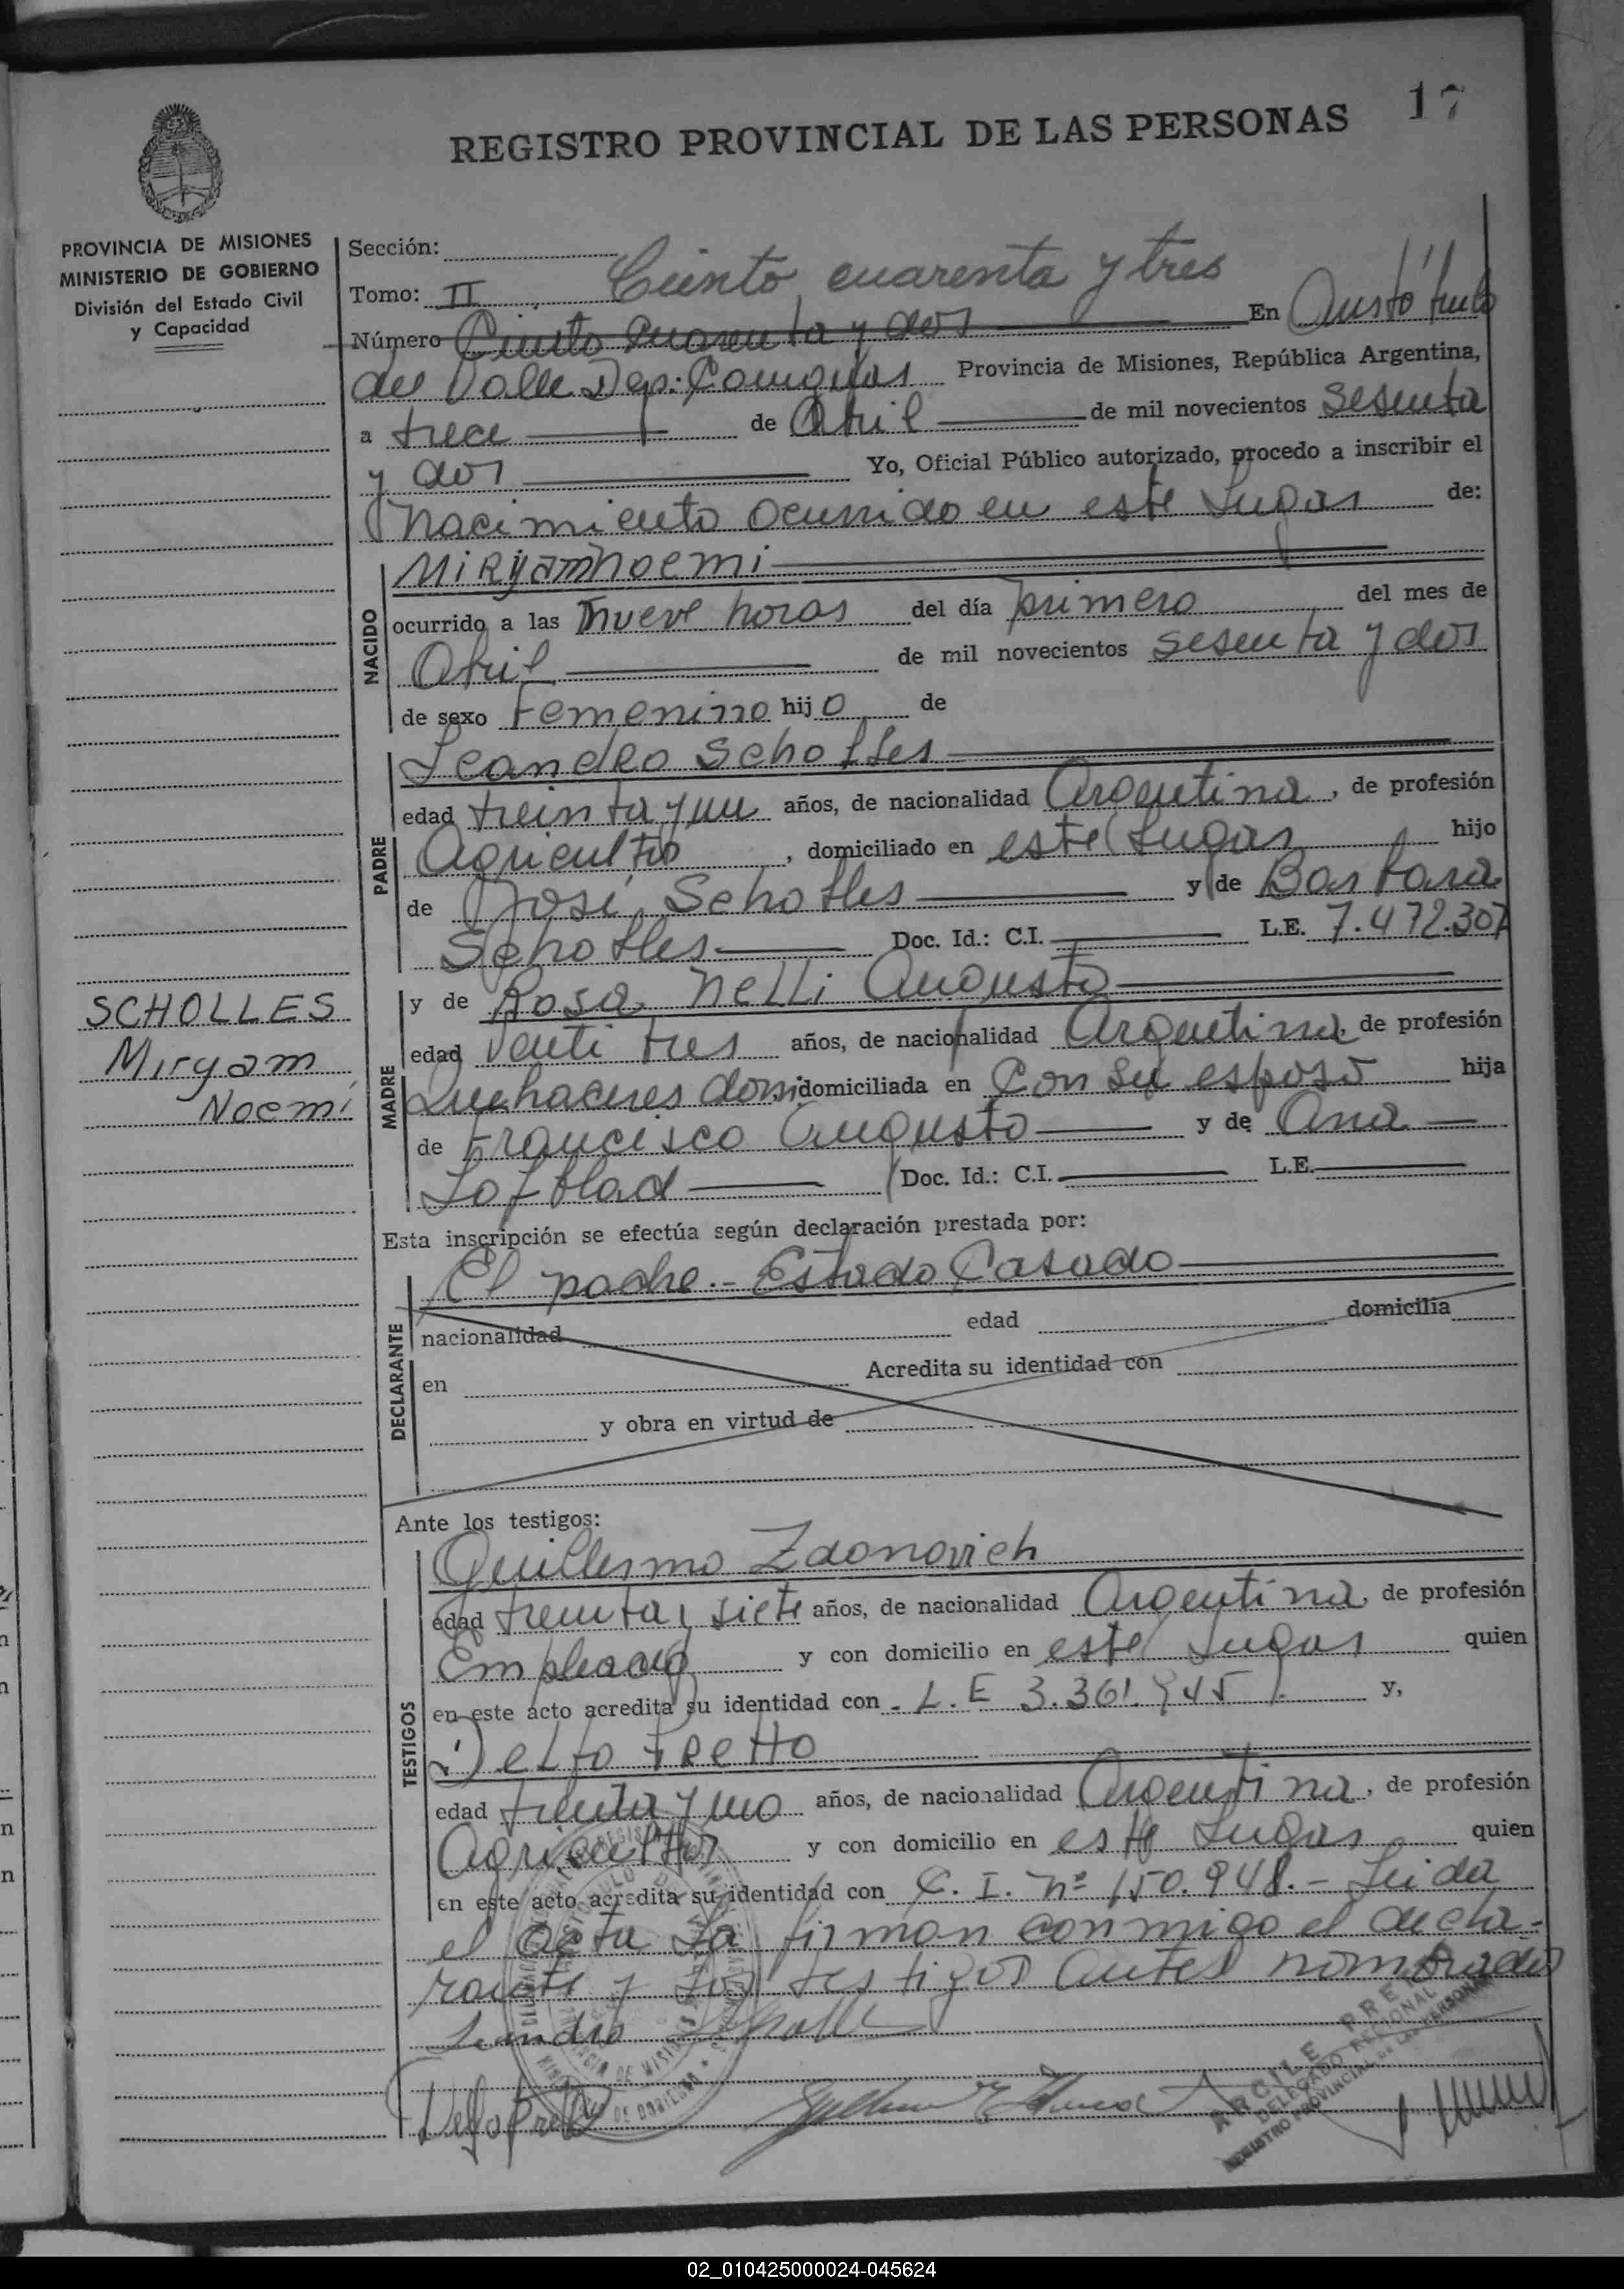 17
REGISTRO PROVINCIAL DE LAS PERSONAS
PROVINCIA DE MISIONES
MINISTERIO DE GOBIERNO
División del Estado Civil
y Capacidad
Sección:
Tomo: II Ciento cuarenta y tres
Número Ciento Cuarenta y dos En Aristóbulo
del Valle Dep: Cainguas Provincia de Misiones, República Argentina,
a trece de Abril de mil novecientos sesenta
y dos Yo, Oficial Público autorizado, procedo a inscribir el
Nacimiento ocurrido en este Lugar de:
NACIDO
Miryam Noemi
ocurrido a las nueve horas del día primero del mes de
Abril de mil novecientos sesenta y dos
de sexo Femenino hijo de
PADRE
Leandro Scholles
edad treinta y un años, de nacionalidad Argentina, de profesión
Agricultor, domiciliado en este Lugar hijo
de José Scholles y de Barbara
Scholles Doc. Id.: C.I. L.E. 7.472.307
SCHOLLES
Miryam
Noemí
MADRE
y de Rosa Nelli Augusto
edad venti tres años, de nacionalidad Argentina, de profesión
Quehaceres domi domiciliada en Con su esposo hija
de Francisco Augusto y de Ana
Doc. Id.: C.I. L.E.
Esta inscripción se efectúa según declaración prestada por:
DECLARANTE
El padre.- Estado Casado
nacionalidad edad domicilia
en Acredita su identidad con
y obra en virtud de
Ante los testigos:
TESTIGOS
Guillermo Zdanovich
edad treinta y siete años, de nacionalidad Argentina, de profesión
Empleado y con domicilio en este Lugar quien
en este acto acredita su identidad con L.E 3.361.945 y,
Delfo Pretto
edad treinta y uno años, de nacionalidad Argentina, de profesión
Agricultor y con domicilio en este Lugar quien
en este acto acredita su identidad con C.I. Nº 150.948.- Leida
el acta la firman conmigo el decla-
rante y los testigos antes nombrados
Leandro Scholles
Delfo Pretto
DELEGADO REGIONAL
REGISTRO PROVINCIAL DE LAS PERSONAS
02_010425000024-045624